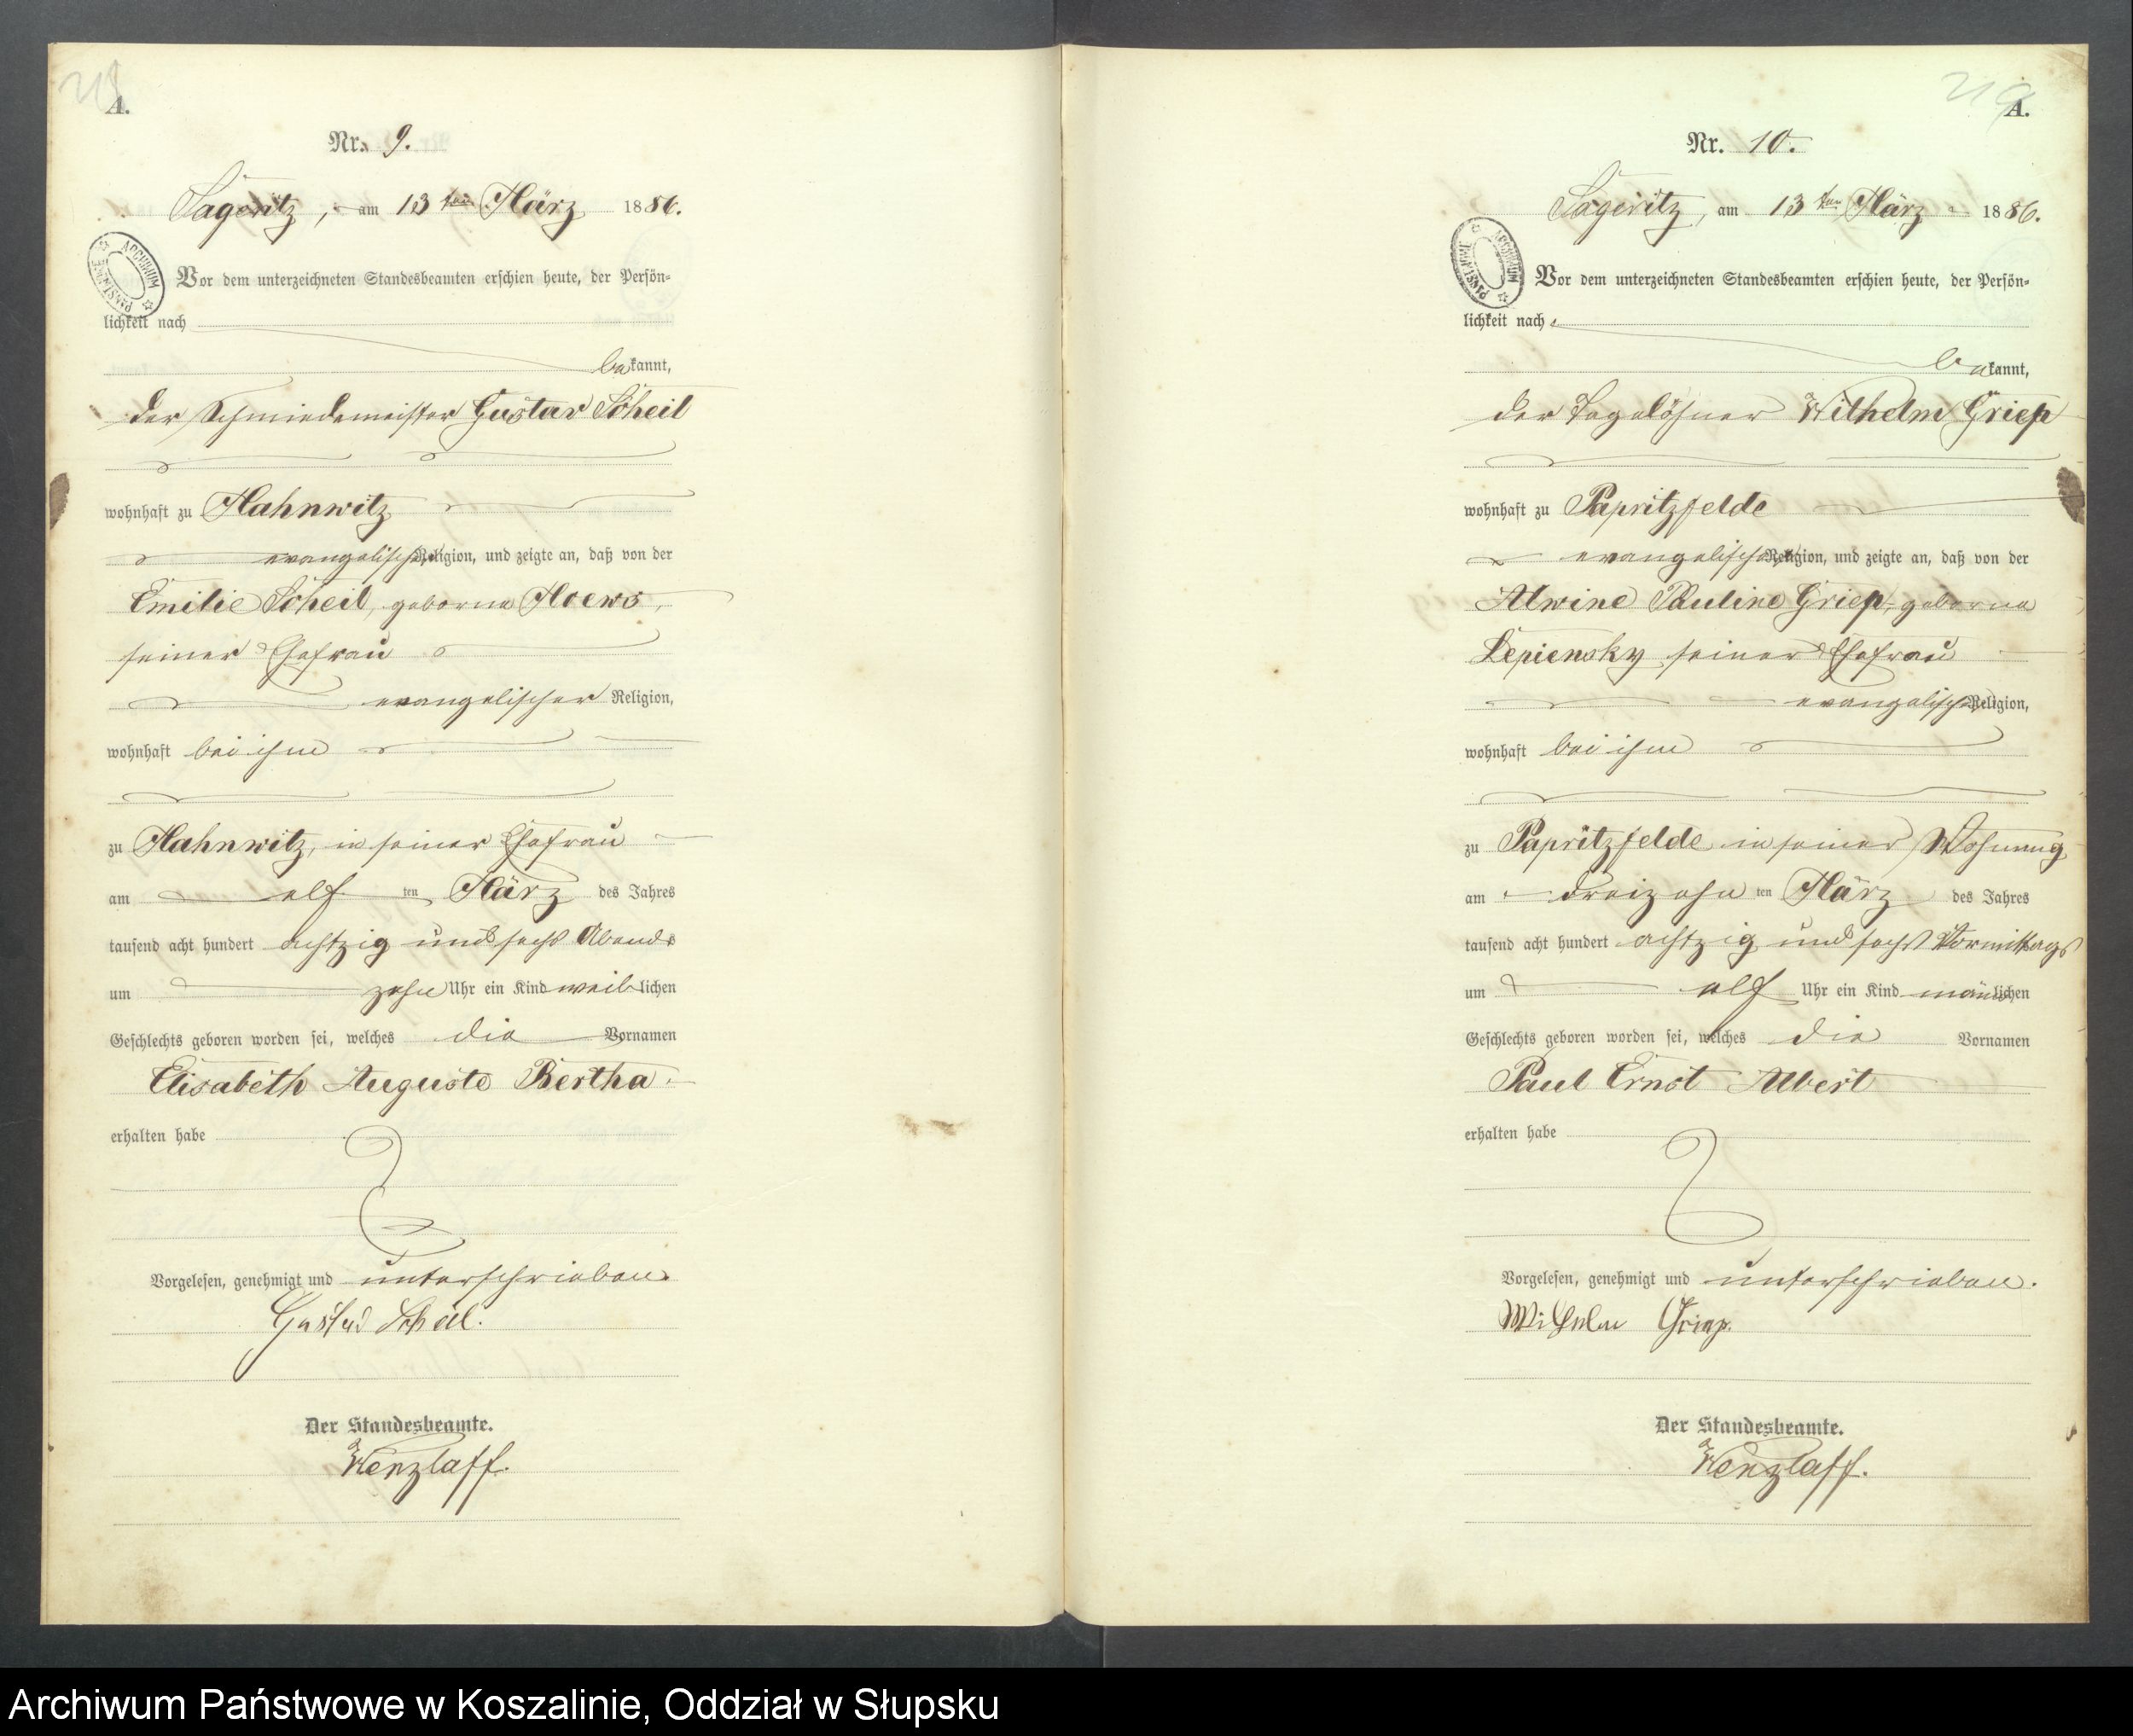 218
A.
Nr. 9.
Sageritz, am 13ten März 1886.
ARCHIWUM PAŃSTWOWE
Vor dem unterzeichneten Standesbeamten erschien heute, der Persön=
lichkeit nach
bekannt,
der Schmiedemeister Gustav Scheil
wohnhaft zu Hahnwitz
evangelischer Religion, und zeigte an, daß von der
Emilie Scheil, geborne
seiner Ehefrau
evangelischer Religion,
wohnhaft bei ihm
zu Hahnwitz, in seiner Ehefrau
am elf ten März des Jahres
tausend acht hundert achtzig und sechs Abends
um zehn Uhr ein Kind weiblichen
Geschlechts geboren worden sei, welches die Vornamen
Elisabeth Auguste Bertha
erhalten habe
Vorgelesen, genehmigt und unterschrieben.
Gustav Scheil.
Der Standesbeamte.
Wenzlaff.
219
A.
Nr. 10.
Sageritz, am 13ten März 1886.
ARCHIWUM PAŃSTWOWE
Vor dem unterzeichneten Standesbeamten erschien heute, der Persön=
lichkeit nach
bekannt,
der Tagelöhner Wilhelm Griep
wohnhaft zu Papritzfelde
evangelischer Religion, und zeigte an, daß von der
Alwine Pauline Griep, geborne
Lepiensky seiner Ehefrau
evangelischer Religion,
wohnhaft bei ihm
zu Papritzfelde in seiner Wohnung
am dreizehn ten März des Jahres
tausend acht hundert achtzig und sechs Vormittags
um elf Uhr ein Kind männlichen
Geschlechts geboren worden sei, welches die Vornamen
Paul Ernst Albert
erhalten habe
Vorgelesen, genehmigt und unterschrieben.
Wilhelm Griep.
Der Standesbeamte.
Wenzlaff.
Archiwum Państwowe w Koszalinie, Oddział w Słupsku